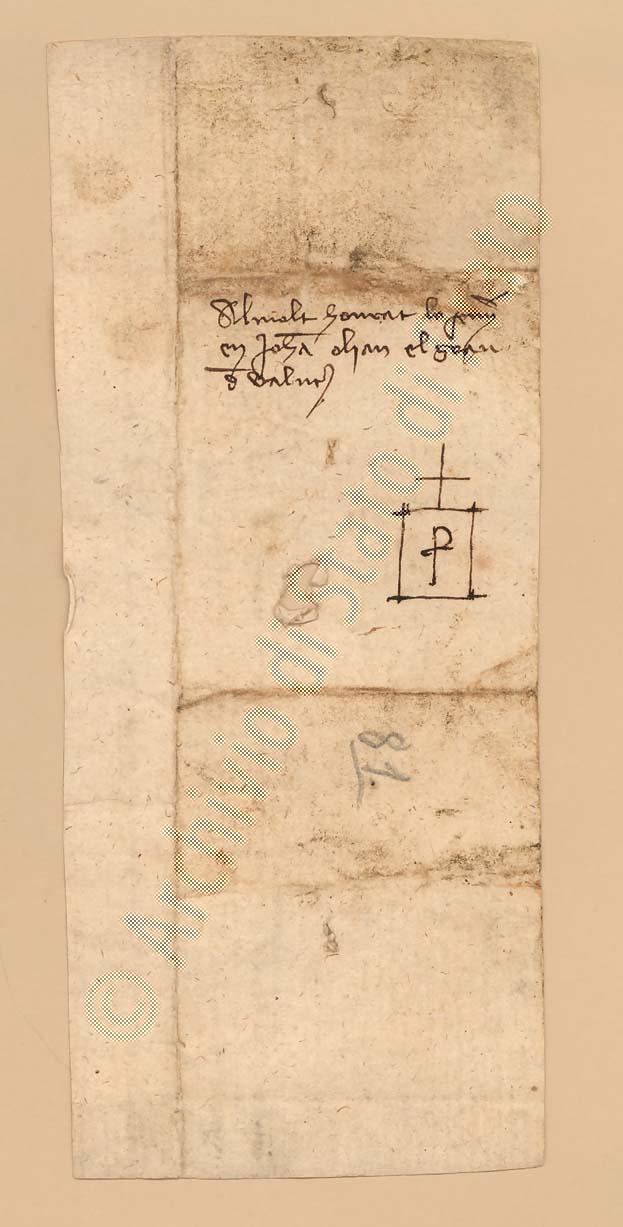 Al molt honrat lo senyor
en Joha olian el grau
d valnc
P
81
© Archivio di Stato di Prato